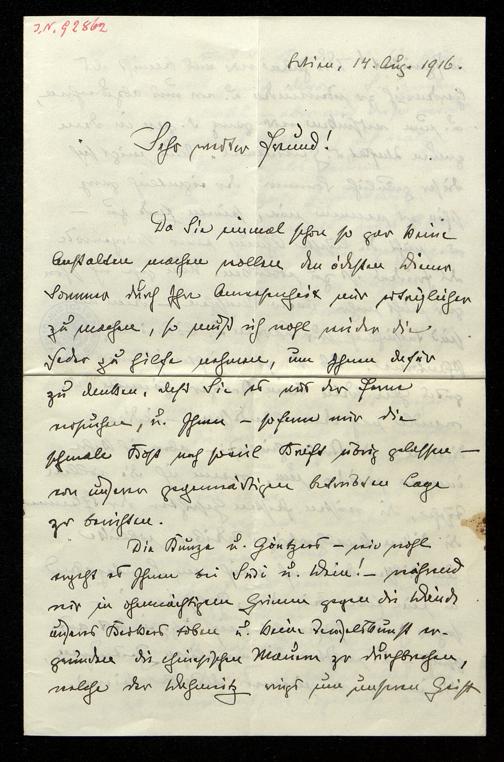 J.N. 92862
Wien, 14. Aug. 1916.
Sehr werter Freund!
Da Sie einmal schon so gar keine
Anstalten machen wollen den ödesten Wiener
Sommer durch Ihre Anwesenheit mir erträglicher
zu machen, so muß ich wohl wieder die
Feder zu Hilfe nehmen, um Ihnen dafür
zu danken, daß Sie es aus der Ferne
versuchen, u. Ihnen – sofern mir die
schmale Kost noch soviel Kraft übrig gelassen –
von unserer gegenwärtigen betrübten Lage
zu berichten.
Die Kunze u. – wie wohl
ergeht es Ihnen bei u. Wein! – während
wir in ohnmächtigem Grimm gegen die Wände
unseres Kerkers toben u. keine Teufelskunst er-
gründen die chinesischen Mauern zu durchbrechen,
welche der Wahnwitz rings um unseren Geist